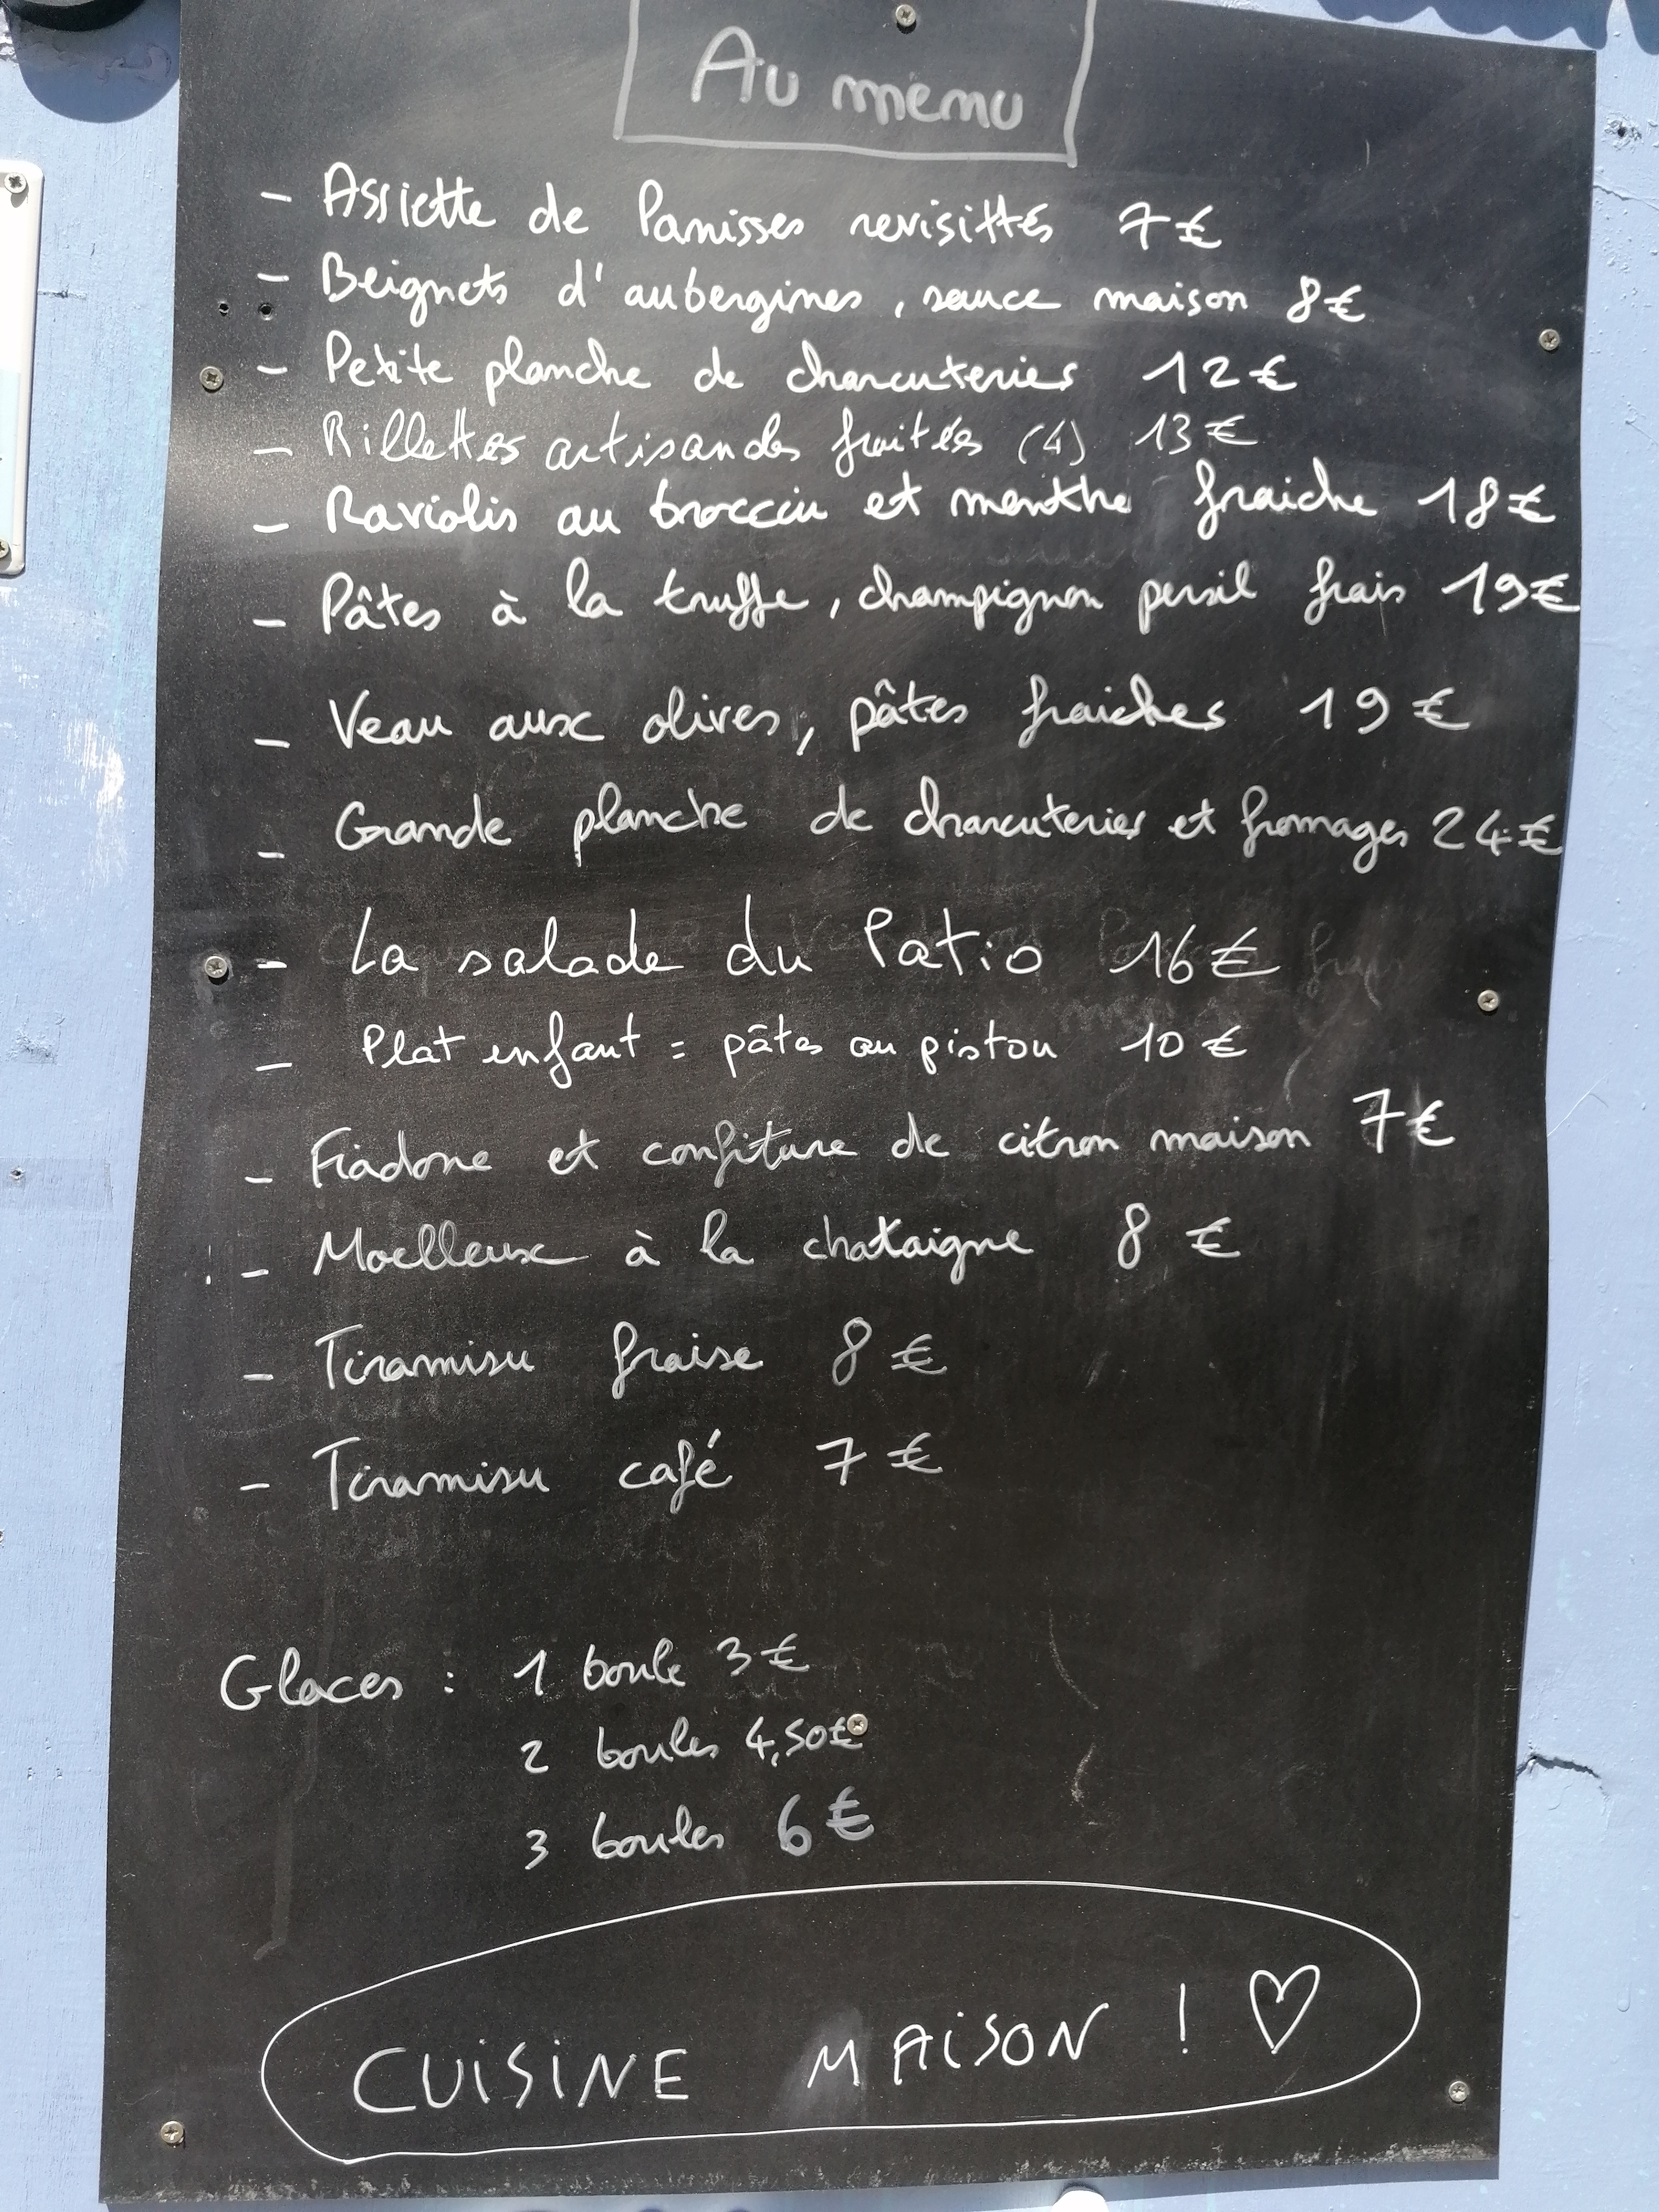 Au menu
- Assiette de Panisses revisittés 7€
- Beignets d'aubergines, sauce maison 8€
- Petite planche de charcuteries 12€
- Rillettes artisanales fruitées (4) 13€
- Raviolis au brocciu et menthe fraiche 18€
- Pâtes à la truffe, champignon persil frais 19€
- Veau aux olives, pâtes fraiches 19€
- Grande planche de charcuteries et fromages 24€
- La salade du Patio 16€
- Plat enfant = pâtes au pistou 10€
- Fiadone et confiture de citron maison 7€
- Moelleux à la chataigne 8 €
- Tiramisu fraise 8€
- Tiramisu café 7€
Glaces : 1 boule 3€
2 boules 4,50€
3 boules 6€
CUISINE MAISON ! ♡